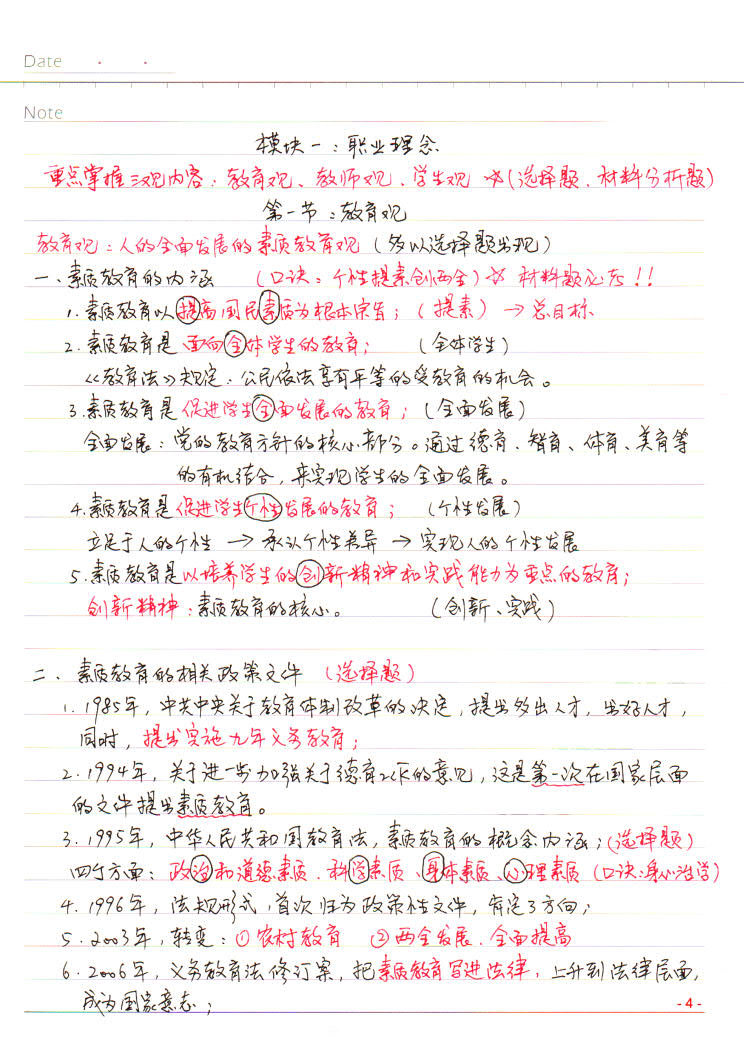 Date
Note
模块一:职业理念
重点掌握三观内容:教育观、教师观、学生观 ☆(选择题、材料分析题)
第一节:教育观
教育观:人的全面发展的素质教育观(多以选择题出现)
一、素质教育的内涵 (口诀:个性提素创两全)☆ 材料题必考!!
1.素质教育以提高国民素质为根本宗旨;(提素)→总目标
2.素质教育是面向全体学生的教育; (全体学生)
《教育法》规定:公民依法享有平等的受教育的机会。
3.素质教育是促进学生全面发展的教育;(全面发展)
全面发展:党的教育方针的核心部分。通过德育、智育、体育、美育等
的有机结合,来实现学生的全面发展。
4.素质教育是促进学生个性发展的教育; (个性发展)
立足于人的个性→承认个性差异→实现人的个性发展
5.素质教育是以培养学生的创新精神和实践能力为重点的教育;
创新精神:素质教育的核心。 (创新、实践)
二、素质教育的相关政策文件 (选择题)
1.1985年,中共中央关于教育体制改革的决定,提出多出人才,出好人才,
同时,提出实施九年义务教育;
2.1994年,关于进一步加强关于德育工作的意见,这是第一次在国家层面
的文件提出素质教育。
3.1995年,中华人民共和国教育法,素质教育的概念内涵;(选择题)
四个方面:政治和道德素质、科学素质、身体素质、心理素质(口诀:身心治学)
4.1996年,法规形式,首次归为政策性文件,肯定3方向;
5.2003年,转变:①农村教育 ②两全发展、全面提高
6.2006年,义务教育法修订案,把素质教育写进法律,上升到法律层面,
成为国家意志;
-4-